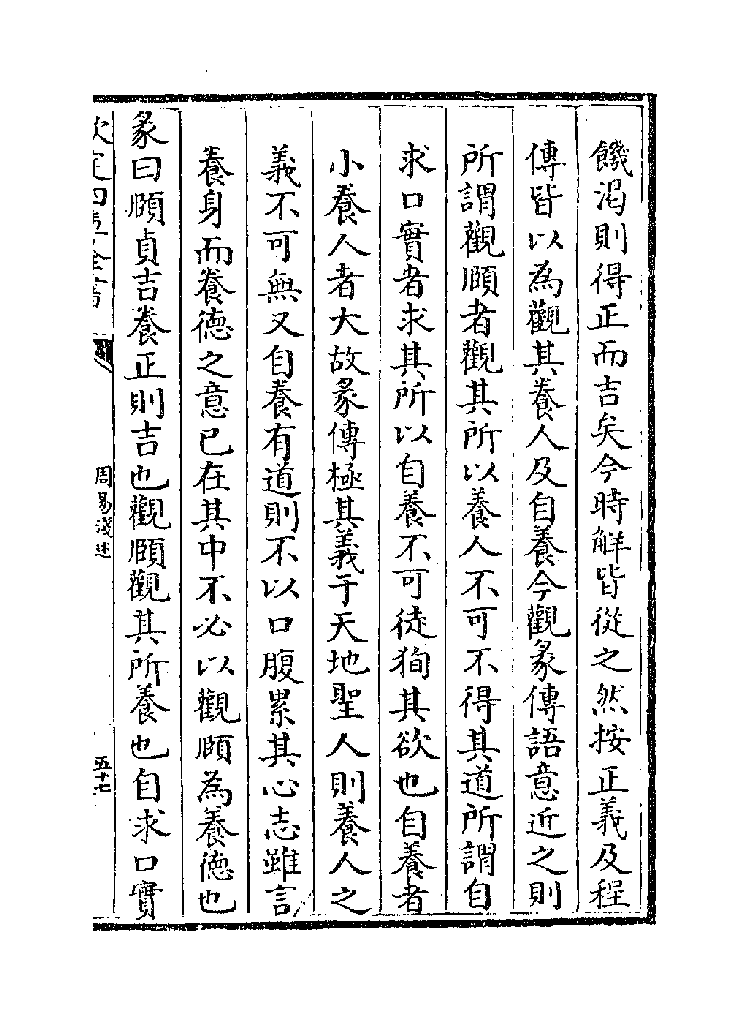 饑渴則得正而吉矣今時解皆從之然按正義及程
傳皆以為觀其養人及自養今觀彖傳語意近之則
所謂觀頤者觀其所以養人不可不得其道所謂自
求口實者求其所以自養不可徒狥其欲也自養者
小養人者大故彖傳極其義于天地聖人則養人之
義不可無又自養有道則不以口腹累其心志雖言
養身而養德之意已在其中不必以觀頤為養德也
彖曰頤貞吉養正則吉也觀頤觀其所養也自求口實
欽定四庫全書
周易淺述
五十七